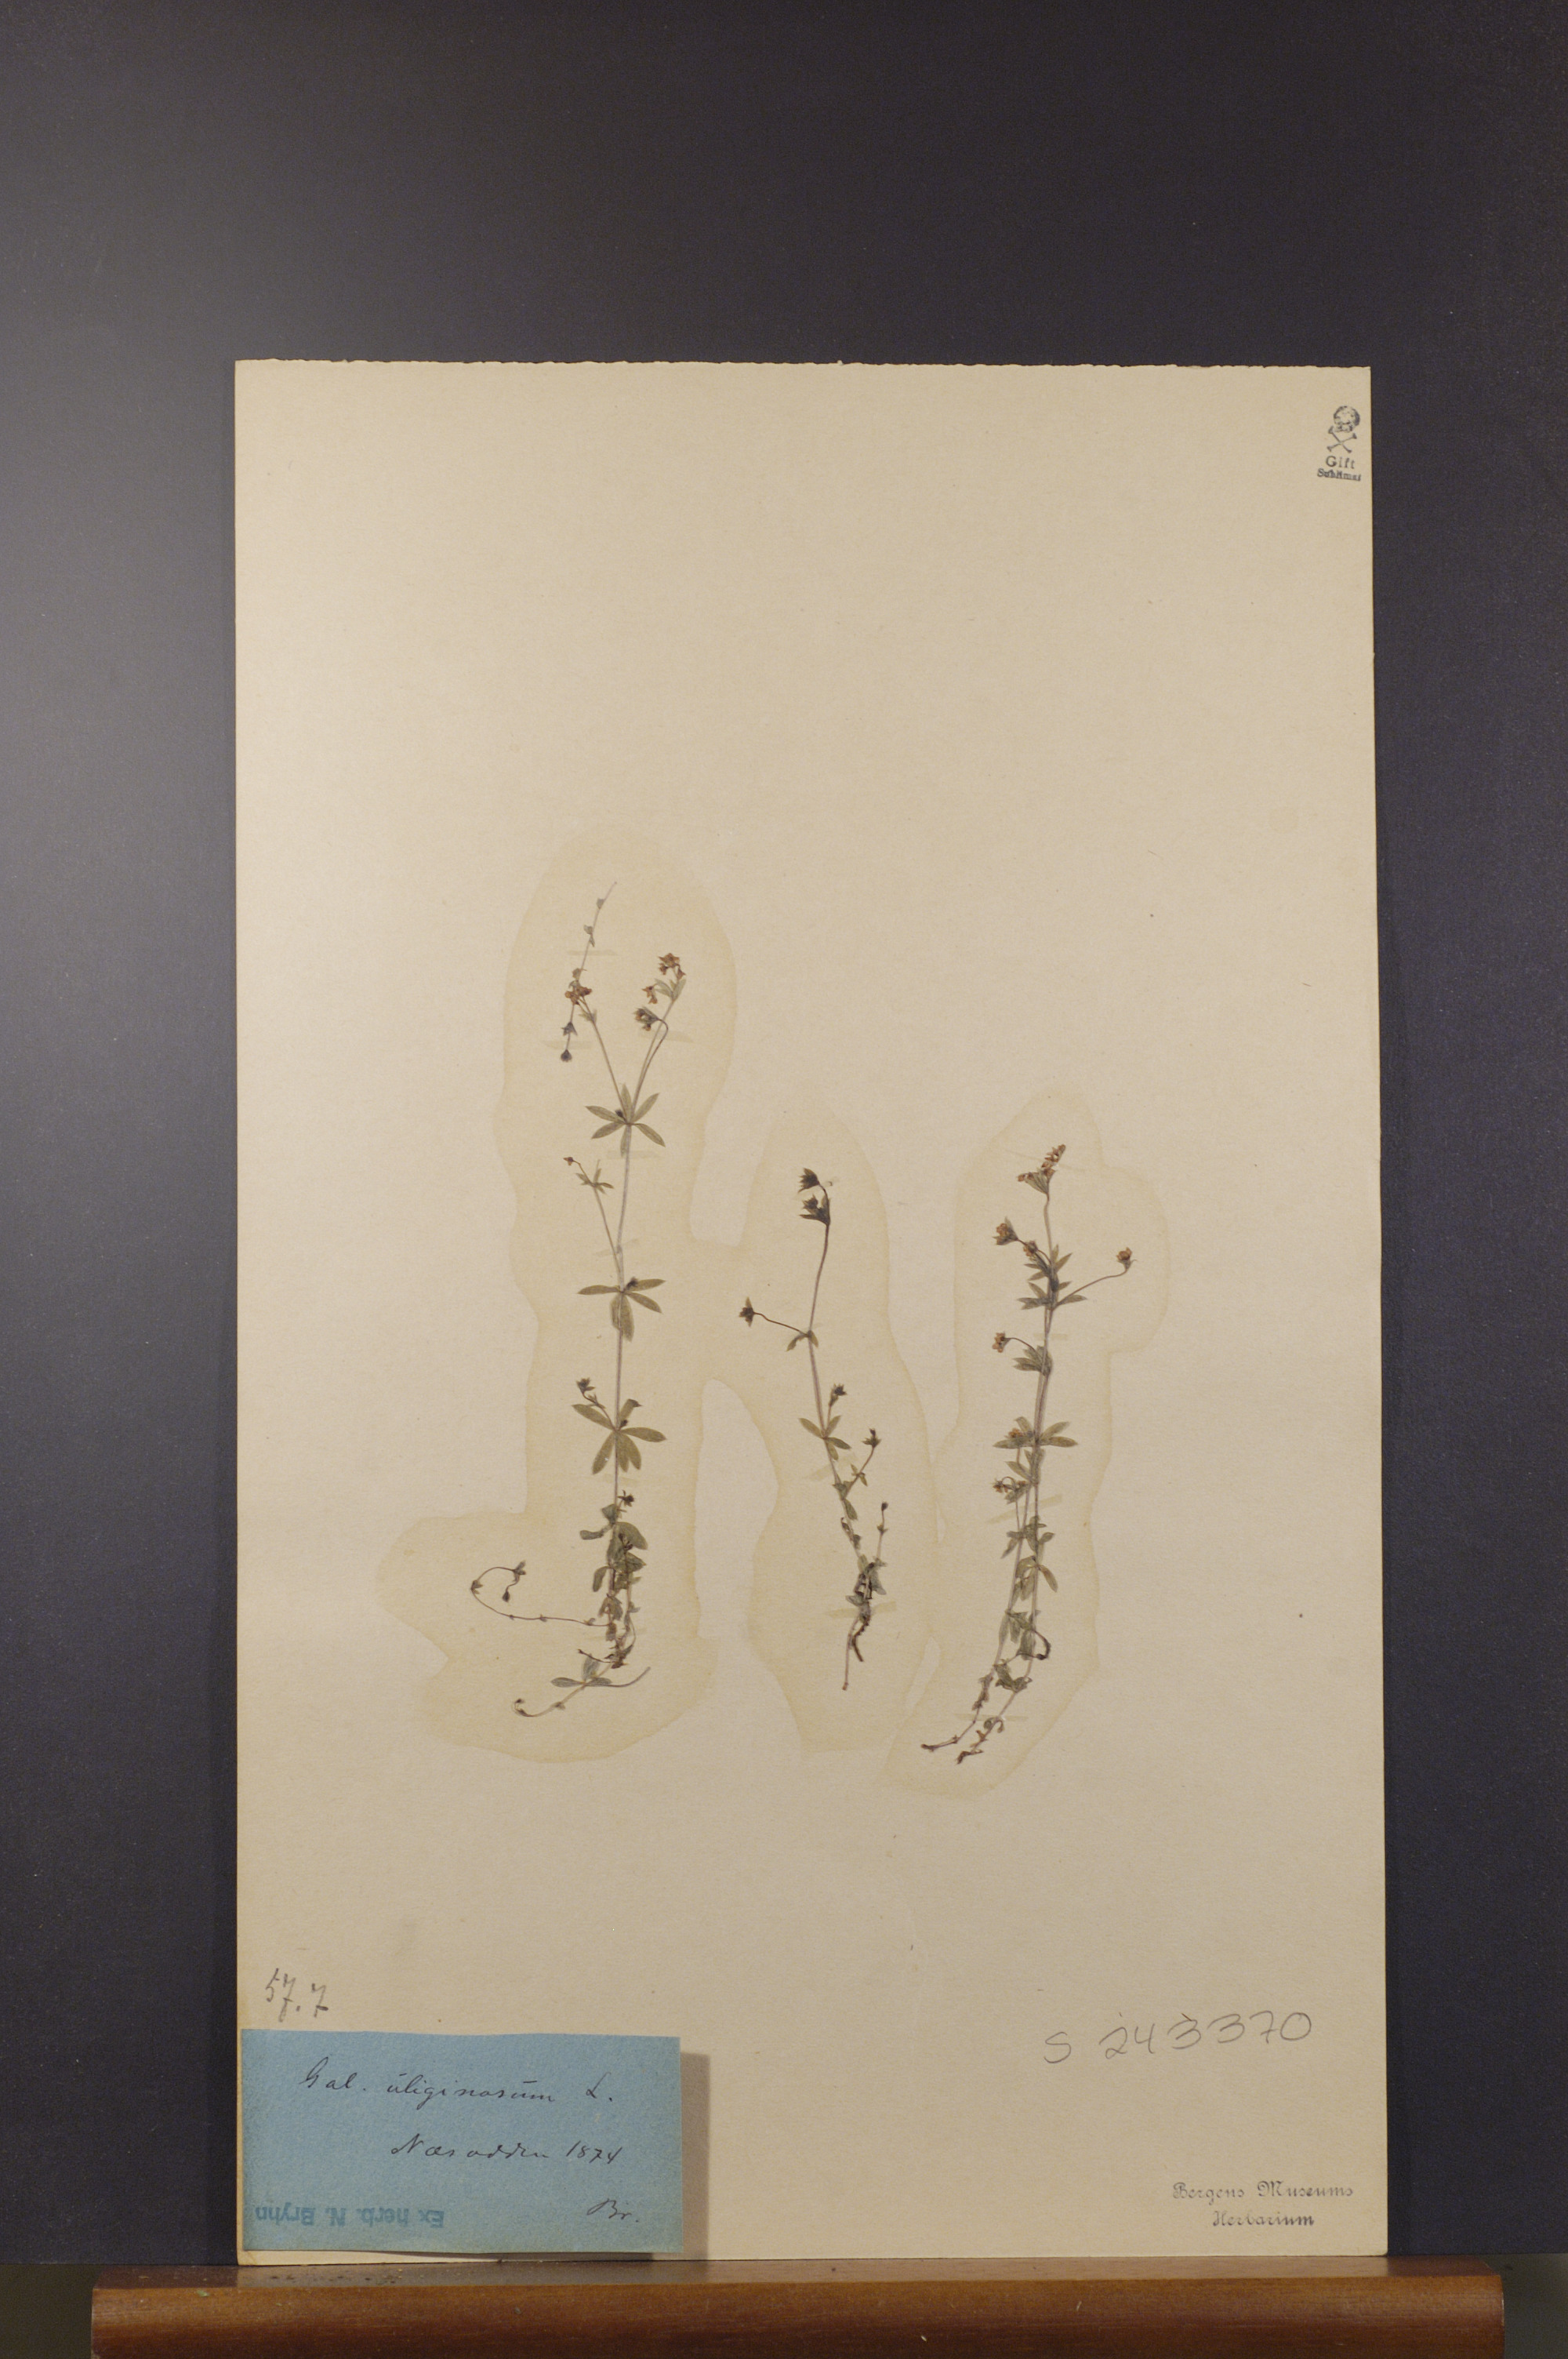 Gift
Sublimat
57.7
S 243370
Gal. uliginosum L.
Næsodden 1874
Br.
Ex herb. N. Bryhn
Bergens Museums
Herbarium